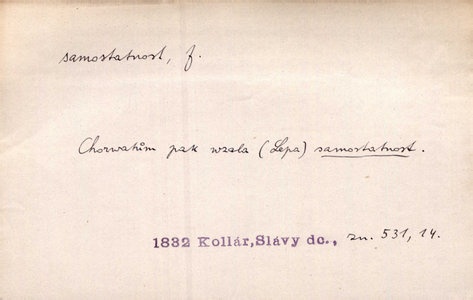 samostatnost, f.
Chorwatům pak wzala (Lepa) samostatnost.
1832 Kollár,Slávy dc., zn. 531, 14.